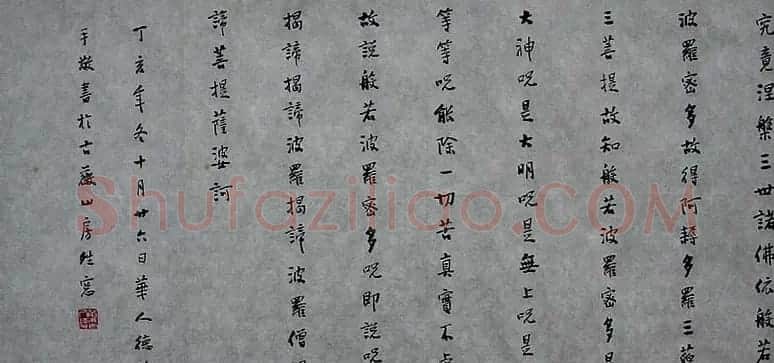 究竟涅槃三世諸佛依般若
波羅密多故得阿耨多羅三藐
三菩提故知般若波羅密多是
大神呪是大明呪是無上呪是
等等呪能除一切苦真實不虛
故說般若波羅密多呪即說呪
揭諦揭諦波羅揭諦波羅僧揭
諦菩提薩婆訶
丁亥年冬十月廿六日華人德
于敬書於古藤山房牲窓
Shufaziliao.COM